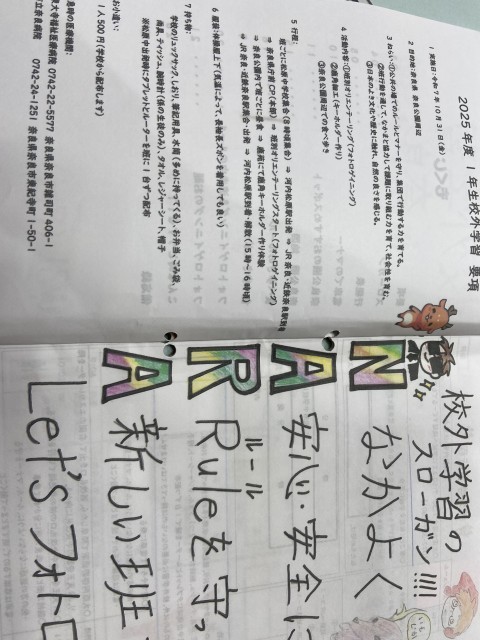 2025年度 1年生校外学習 要項
1 実施日:令和7年10月31日(金)
2 目的地:奈良県 奈良公園周辺
3 ねらい:①公共の場でのルールとマナーを守り、集団で行動する力を育てる。
②班行動を通して、なかまと協力して課題に取り組む力を育て、社会性を育む。
③日本のよき文化や歴史に触れ、自然の良さを感じる。
4 活動内容:①班別オリエンテーリング(フォトロゲイニング)
②鹿角細工(キーホルダー作り)
③奈良公園周辺での食べ歩き
5 行程:
班ごとに松原中学校集合(8時頃集合) ⇒ 河内松原駅出発 ⇒ JR奈良・近鉄奈良駅到着
⇒ 奈良県庁前CP(本部) ⇒ 班別オリエンテーリングスタート(フォトロゲイニング)
⇒ 奈良公園内で班ごとに昼食 ⇒ 鹿苑にて鹿角キーホルダー作り体験
⇒ JR奈良・近鉄奈良駅集合・出発 ⇒ 河内松原駅到着・解散(15時~16時頃)
6 服装:体操服上下(気温によって、長袖長ズボンを着用しても良い)
7 持ち物:
学校のリュックサック、しおり、筆記用具、水筒(多めに持ってくる)、お弁当、ごみ袋、
雨具、ティッシュ、腕時計(係の生徒のみ)、タオル、レジャーシート、帽子
※松原中出発時にタブレットとルーターを班に1台ずつ配布
お小遣い:
1人500円(学校から配布します)
急時の医療機関:
0742-22-5577 奈良県奈良市雑司町406-1
奈良病院 0742-24-1251 奈良県奈良市東紀寺町1-50-1
校外学習の
スローガン!!!!
N なかよく
A 安心・安全に
R Ruleを守っ
ルール
A 新しい班
Let's フォトロ